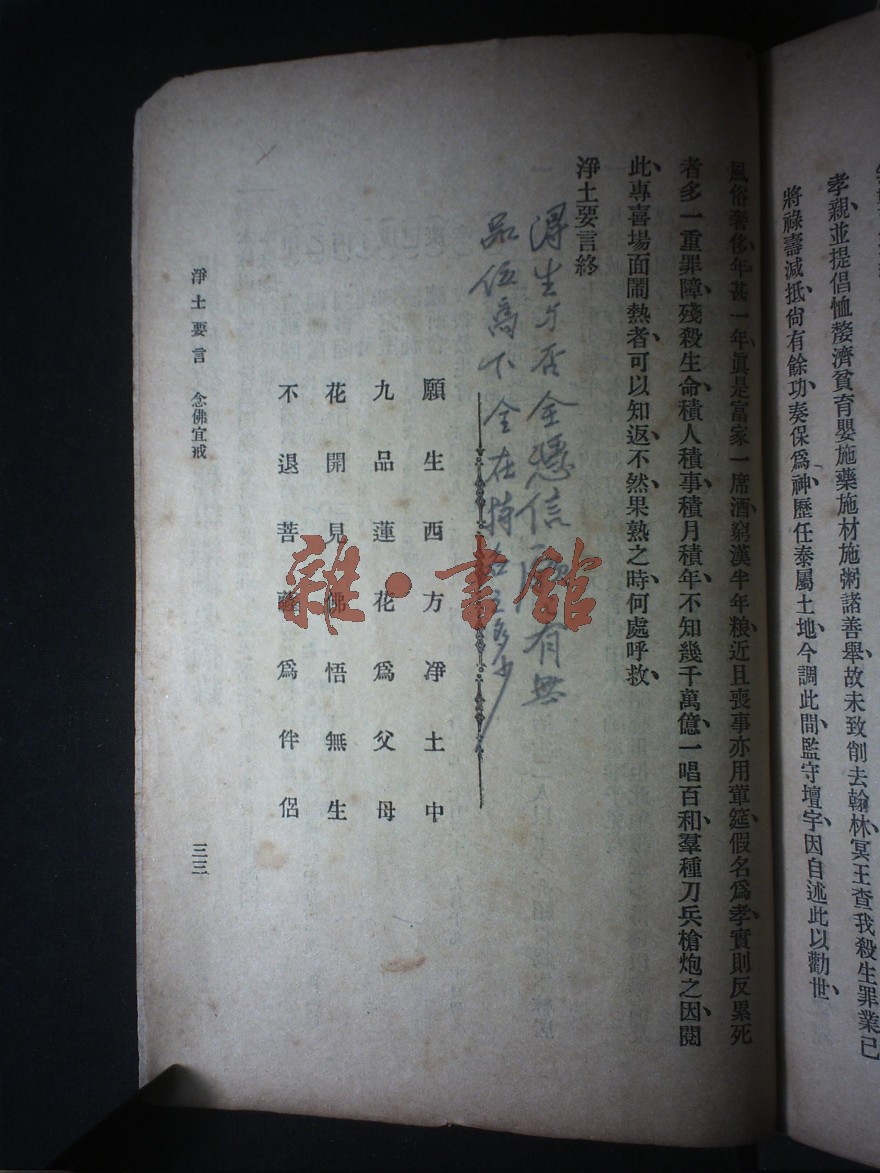 孝親、並提倡恤嫠濟貧育嬰施藥施材施粥諸善舉、故未致削去翰林、冥王查我殺生罪業已
將祿壽減抵、尙有餘功、奏保爲神、歷任泰屬土地、今調此間監守壇宇、因自述此以勸世、
風俗奢侈、年甚一年、眞是富家一席酒、窮漢半年粮、近且喪事亦用葷筵、假名爲孝、實則反累死
者多一重罪障、殘殺生命、積人積事、積月積年、不知幾千萬億、一唱百和、羣種刀兵槍炮之因、閱
此專喜場面鬧熱者、可以知返、不然果熟之時、何處呼救、
淨土要言終
得生与否全憑信願有無
品位高下全在持名
願生西方淨土中
九品蓮花爲父母
花開見佛悟無生
不退菩薩爲伴侶
淨土要言 念佛宜戒 三三
雜·書館